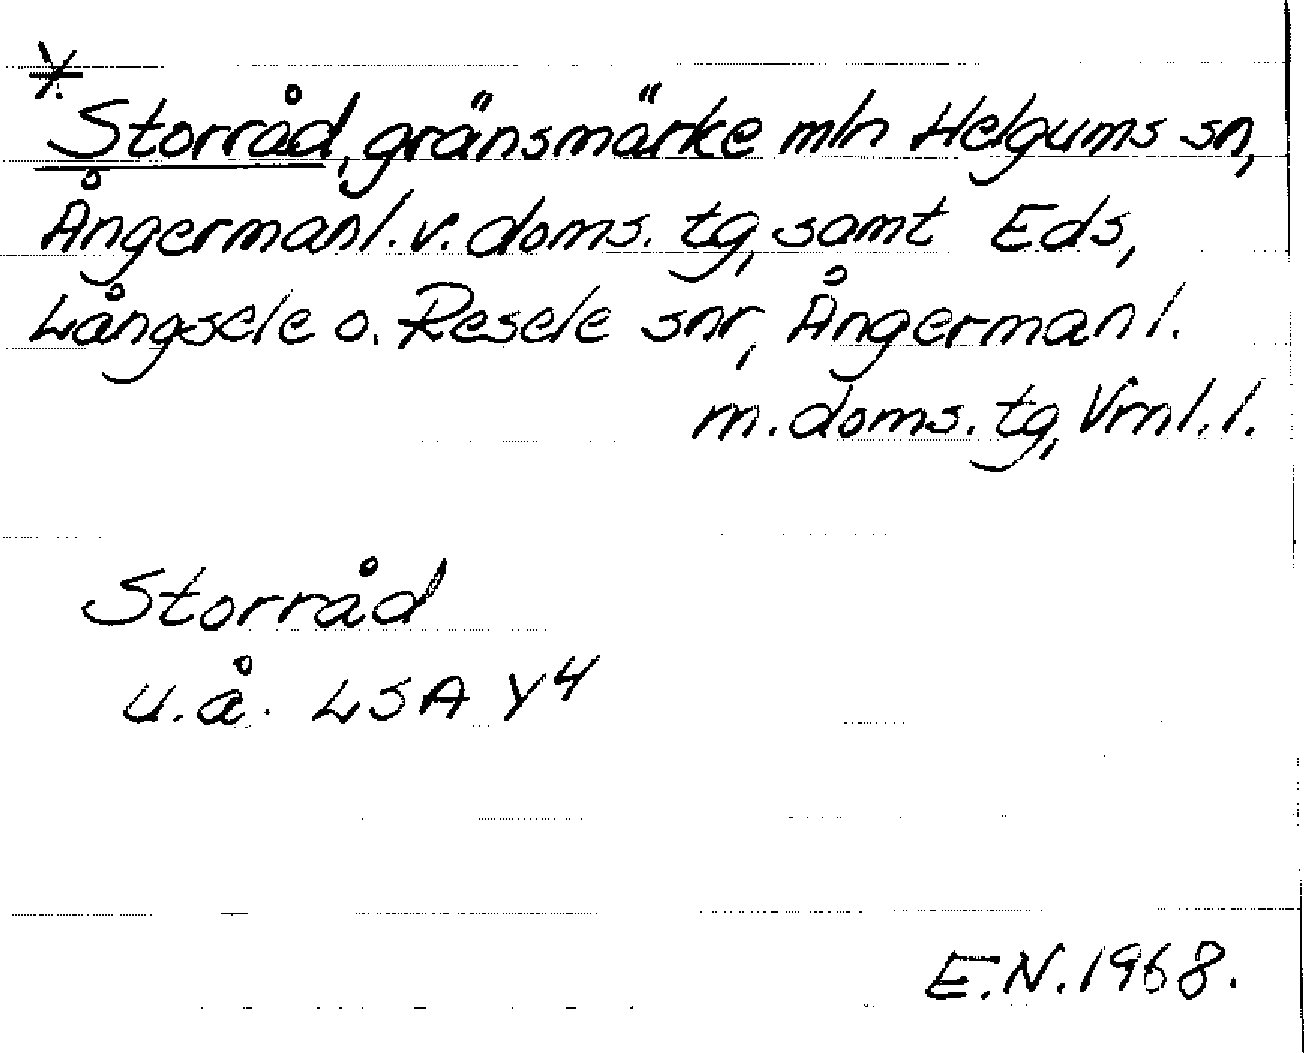 * Storråd, gränsmärke mln Helgums sn,
Ångermanl. v. doms. tg, samt Eds,
Långsele o. Resele snr, Ångermanl.
m. doms. tg, Vrnl. l.
Storråd
u.å. LSA Y4
E.N. 1968.